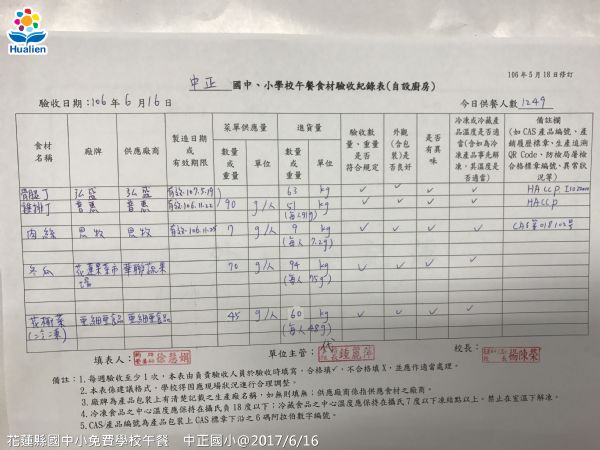 Hualien
106年5月18日修訂
中正 國中、小學校午餐食材驗收紀錄表(自設廚房)
驗收日期:106年6月16日
今日供餐人數1249
食材名稱 廠牌 供應廠商 製造日期或有效期限 菜單供應量 數量或重量 單位 進貨量 數量或重量 單位 驗收數量、重量是否符合規定 外觀(含包裝)是否良好 是否有異味 冷凍或冷藏產品溫度是否適當(含如為冷凍產品事先解凍,其溫度是否適當) 備註欄(如CAS產品編號、產銷履歷標章、生產追溯QR Code、防檢局屠檢合格標章編號、異常狀況等)
骨腿丁 弘盛 弘盛 有效.107.5.19 63 kg ✓ ✓ ✓ ✓ HACCP
雞排丁 普惠 普惠 有效.106.11.22 90 g/人 51 kg ✓ ✓ ✓ ✓ HACCP
(每人91g)
肉絲 思牧 思牧 7 g/人 9 kg ✓ ✓ ✓ ✓ CAS第018102號
(每人7.2g)
冬瓜 花蓮果菜市場 華聯蔬果 70 g/人 94 kg ✓ ✓ ✓ ✓
(每人75g)
花椰菜 45 g/人 60 kg ✓ ✓ ✓ ✓
(每人48g)
填表人: 徐慧娟 單位主管: 代 鍾麗萍 校長: 楊陳榮
備註:1.每週驗收至少1次,本表由負責驗收人員於驗收時填寫,合格填✓、不合格填X,並應作適當處理。
2.本表係建議格式,學校得因應現場狀況進行合理調整。
3.廠牌為產品包裝上有清楚記載之生產廠名稱,如無則填無;供應廠商係指供應食材之廠商。
4.冷凍食品之中心溫度應保持在攝氏負18度以下;冷藏食品之中心溫度應保持在攝氏7度以下凍結點以上。禁止在室溫下解凍。
5.CAS/產品編號為產品包裝上CAS標章下沿之6碼阿拉伯數字編號。
花蓮縣國中小免費學校午餐 中正國小@2017/6/16